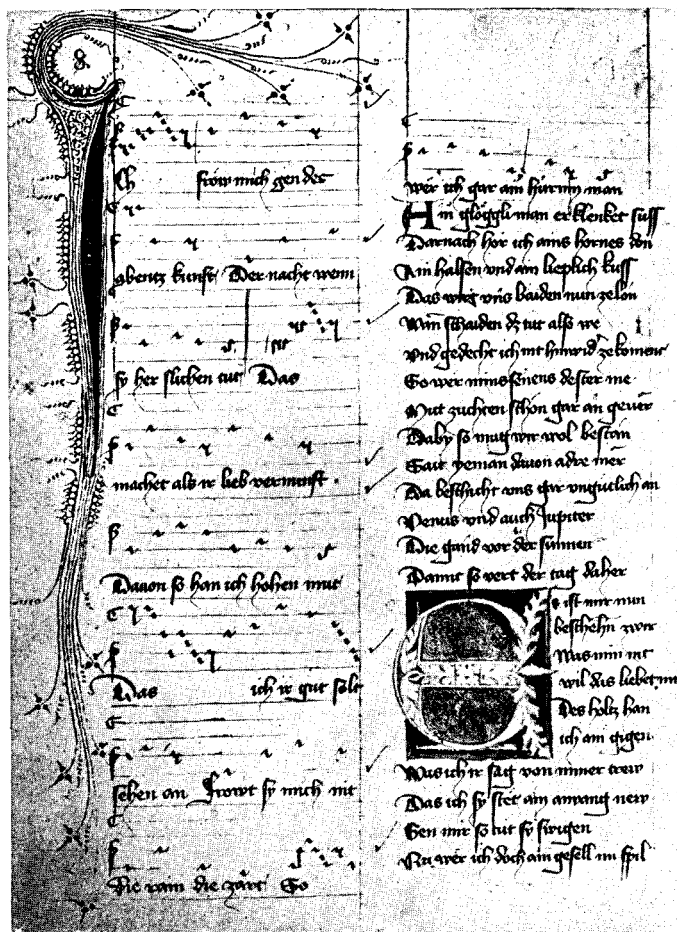 Ich frow mich gen des
abentz kunst Der nacht wenn
sy her slichen tut Das
machet als ir lieb vernunft .
Dauon so han ich hohen mut
Das ich ir gut solt
sehen an Frowt sy mich nit
die rain die zart So
wer ich gar ain hürnin man
Ain glöggli man erklenket süss
Darnach hör ich ains hornes don
Ain halsen vnd ain lieplich kuss
Das wirt vns baiden nun ze lon
Wan schaiden dz tut also we
vnd gedecht ich nit hinwid ze koment
So wer mins senens dester me
Mit zuchten schon gar an geuer
Daby so mug wir wol bestan
Sait yeman dauon adre mer
Da beschicht vns gar vngutlich an
Venus vnd auch Jupiter
Die gand vor der sunnen
Damit so vert der tag daher
Es ist mir nun
beschehn zwir
Was min nit
wil das liebet mir
Des holtz han
ich am gigen
Was ich ir sag von miner trew
Das ich sy stet am anvang new
Gen mir so tut sy swigen
Nu wer ich doch ain gesell im spil